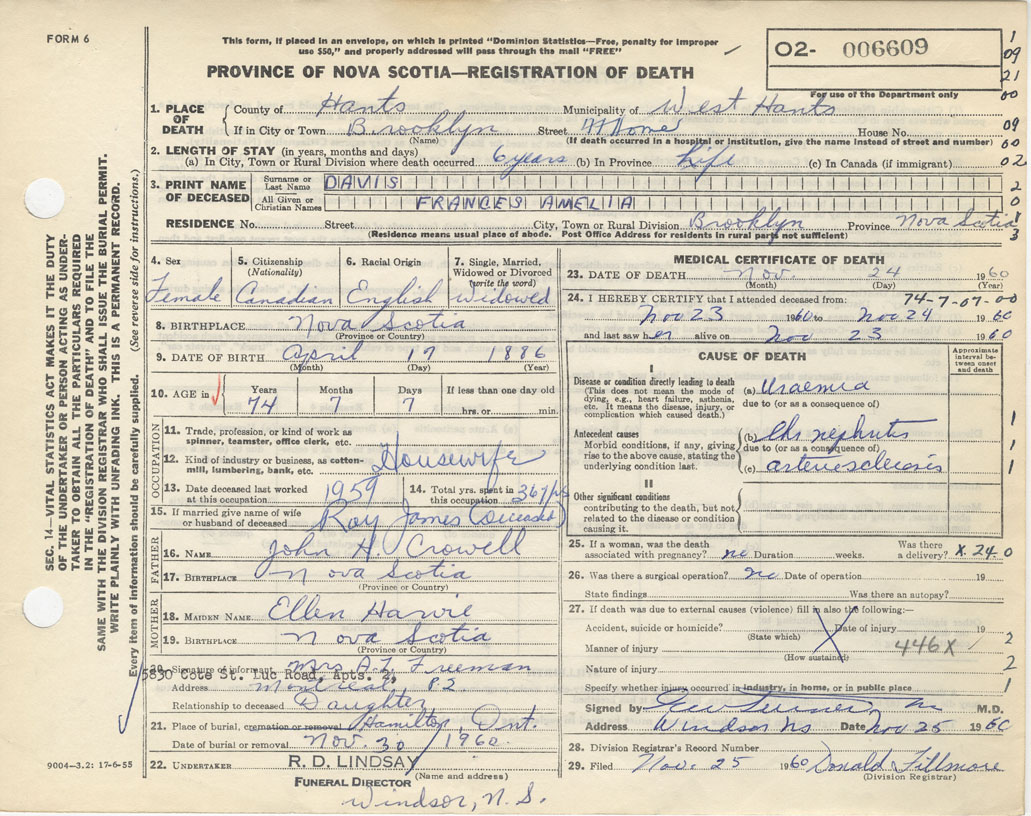 FORM 6
This form, if placed in an envelope, on which is printed "Dominion Statistics—Free, penalty for improper
use $50," and properly addressed will pass through the mail "FREE"
PROVINCE OF NOVA SCOTIA—REGISTRATION OF DEATH
02- 006609
For use of the Department only
1
09
21
00
09
60
02
2
0
1
3
SEC. 14—VITAL STATISTICS ACT MAKES IT THE DUTY
OF THE UNDERTAKER OR PERSON ACTING AS UNDER-
TAKER TO OBTAIN ALL THE PARTICULARS REQUIRED
IN THE "REGISTRATION OF DEATH" AND TO FILE THE
SAME WITH THE DIVISION REGISTRAR WHO SHALL ISSUE THE BURIAL PERMIT.
WRITE PLAINLY WITH UNFADING INK. THIS IS A PERMANENT RECORD.
Every item of information should be carefully supplied. (See reverse side for instructions.)
1. PLACE OF DEATH County of Hants Municipality of West Hants
If in City or Town Brooklyn Street At Home House No.
(Name) (If death occurred in a hospital or institution, give the name instead of street and number)
2. LENGTH OF STAY (in years, months and days)
(a) In City, Town or Rural Division where death occurred 6 years (b) In Province Life (c) In Canada (if immigrant)
3. PRINT NAME OF DECEASED Surname or Last Name DAVIS
All Given or Christian Names FRANCES AMELIA
RESIDENCE No. Street City, Town or Rural Division Brooklyn Province Nova Scotia
(Residence means usual place of abode. Post Office Address for residents in rural parts not sufficient)
4. Sex Female
5. Citizenship (Nationality) Canadian
6. Racial Origin English
7. Single, Married, Widowed or Divorced (write the word) Widowed
8. BIRTHPLACE Nova Scotia
(Province or Country)
9. DATE OF BIRTH April 17 1886
(Month) (Day) (Year)
10. AGE in Years 74 Months 7 Days 7 If less than one day old
hrs. or min.
OCCUPATION
11. Trade, profession, or kind of work as
spinner, teamster, office clerk, etc.
12. Kind of industry or business, as cotton-
mill, lumbering, bank, etc. Housewife
13. Date deceased last worked at this occupation 1959 14. Total yrs. spent in this occupation 36 yrs
15. If married give name of wife
or husband of deceased Roy James (Deceased)
FATHER
16. NAME John H. Crowell
17. BIRTHPLACE Nova Scotia
(Province or Country)
MOTHER
18. MAIDEN NAME Ellen Harvie
19. BIRTHPLACE Nova Scotia
(Province or Country)
20. Signature of informant Mrs A.L. Freeman
5830 Cote St. Luc Road, Apts. 2,
Address Montreal, P.Q.
Relationship to deceased Daughter
21. Place of burial, cremation or removal Hamilton, Ont.
Date of burial or removal Nov. 30 / 1960
22. UNDERTAKER R. D. LINDSAY
FUNERAL DIRECTOR (Name and address)
Windsor, N.S.
9004—3.2: 17-6-55
MEDICAL CERTIFICATE OF DEATH
23. DATE OF DEATH Nov 24 1960
(Month) (Day) (Year)
24. I HEREBY CERTIFY that I attended deceased from: 74-7-07-00
Nov 23 1960 to Nov 24 1960
and last saw her alive on Nov 23 1960
CAUSE OF DEATH
Approximate interval between onset and death
I
Disease or condition directly leading to death
(This does not mean the mode of
dying, e.g., heart failure, asthenia,
etc. It means the disease, injury, or
complication which caused death.)
(a) Uraemia
due to (or as a consequence of)
Antecedent causes
Morbid conditions, if any, giving
rise to the above cause, stating the
underlying condition last.
(b) Chr nephritis
due to (or as a consequence of)
(c) arteriosclerosis
1
1
1
II
Other significant conditions
contributing to the death, but not
related to the disease or condition
causing it.
25. If a woman, was the death
associated with pregnancy? no Duration weeks. Was there a delivery? X 24 0
26. Was there a surgical operation? no Date of operation 19
State findings Was there an autopsy?
27. If death was due to external causes (violence) fill in also the following:—
Accident, suicide or homicide? Date of injury 19 2
(State which)
Manner of injury 446X
(How sustained)
Nature of injury 2
Specify whether injury occurred in industry, in home, or in public place 1
Signed by M.D.
Address Windsor NS Date Nov 25 1960
28. Division Registrar's Record Number
29. Filed Nov. 25 1960 Donald Fillmore
(Division Registrar)